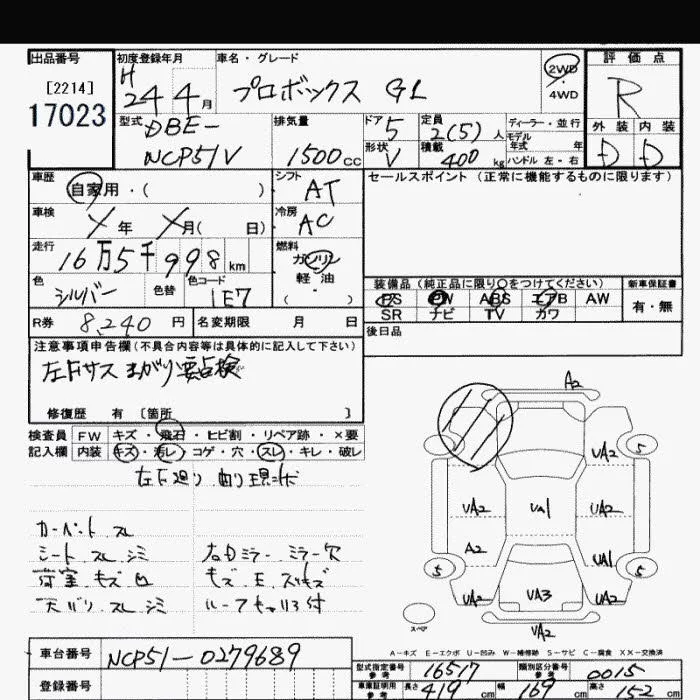 出品番号
[2214]
17023
初度登録年月
H
24 4月
車名・グレード
プロボックス GL
2WD
・
4WD
評価点
R
外装 内装
D D
型式
DBE-
NCP51V
排気量
1500cc
ドア
5
形状
V
定員
2(5)人
積載
400kg
ディーラー・並行
モデル
年式 年
ハンドル 左・右
車歴
自家用・( )
シフト
AT
セールスポイント(正常に機能するものに限ります)
車検
年 月( 日)
冷房
AC
走行
16万5千998km
燃料
ガソリン
軽・油
( )
色
シルバー
色替
色コード
1E7
装備品(純正品に限り○をつけてください)
PS PW ABS エアB AW
SR ナビ TV カワ
新車保証書
有・無
R券 8,240円
名変期限 月 日
後日品
注意事項申告欄(不具合内容等は具体的に記入して下さい)
左Fサス まがり 要点検
修復歴 有 〔箇所 〕
検査員
記入欄
FW キズ・飛石・ヒビ割・リペア跡・×要
内装 キズ・汚レ・コゲ・穴・スレ・キレ・破レ
左F廻り 曲り 現状
カーペット スレ
シート スレ シミ
荷室 キズ 凹
天バリ スレ シミ
右Dミラー ミラー欠
ルーフキャリア付
A2
UA2
5
UA2
UA1
UA2
A2
UA1
5
5
UA2
UA3
UA2
UA2
スペア
A-キズ E-エクボ U-凹み W-補修跡 S-サビ C-腐食 XX-交換済
車台番号
NCP51-0279689
登録番号
型式指定番号
参考
16517
類別区分番号
参考
0015
車庫証明用
参考
長さ 419cm
幅 169cm
高さ 152cm